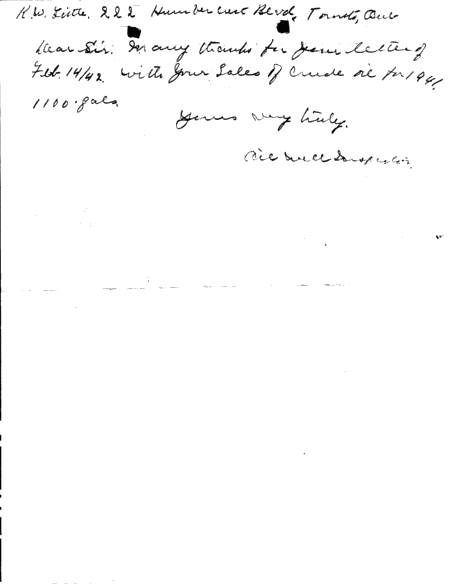 K.W. Little, 222 Humbercrest Blvd, Toronto, Ont
Dear Sir: Many thanks for your letter of
Feb. 14/42 with your Sales of Crude oil for 1941
1100 gals
Yours very truly.
Oil Well Inspector.